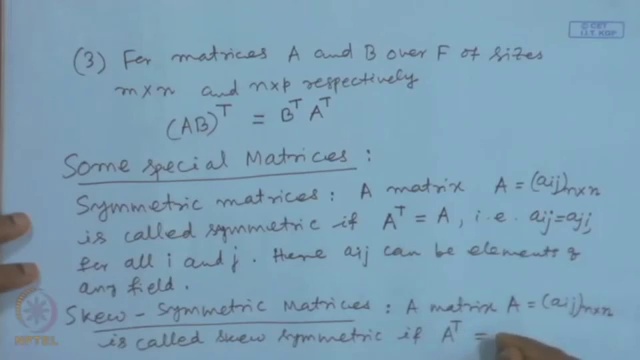 © CET
I.I.T. KGP
(3) For matrices A and B over F of sizes
m×n and n×p respectively
(AB)^T = B^T A^T
Some special Matrices :
Symmetric matrices : A matrix A = (aij)n×n
is called symmetric if A^T = A, i.e. aij = aji
for all i and j. Here aij can be elements of
any field.
Skew-Symmetric Matrices : A matrix A = (aij)n×n
is called skew symmetric if A^T =
NPTEL